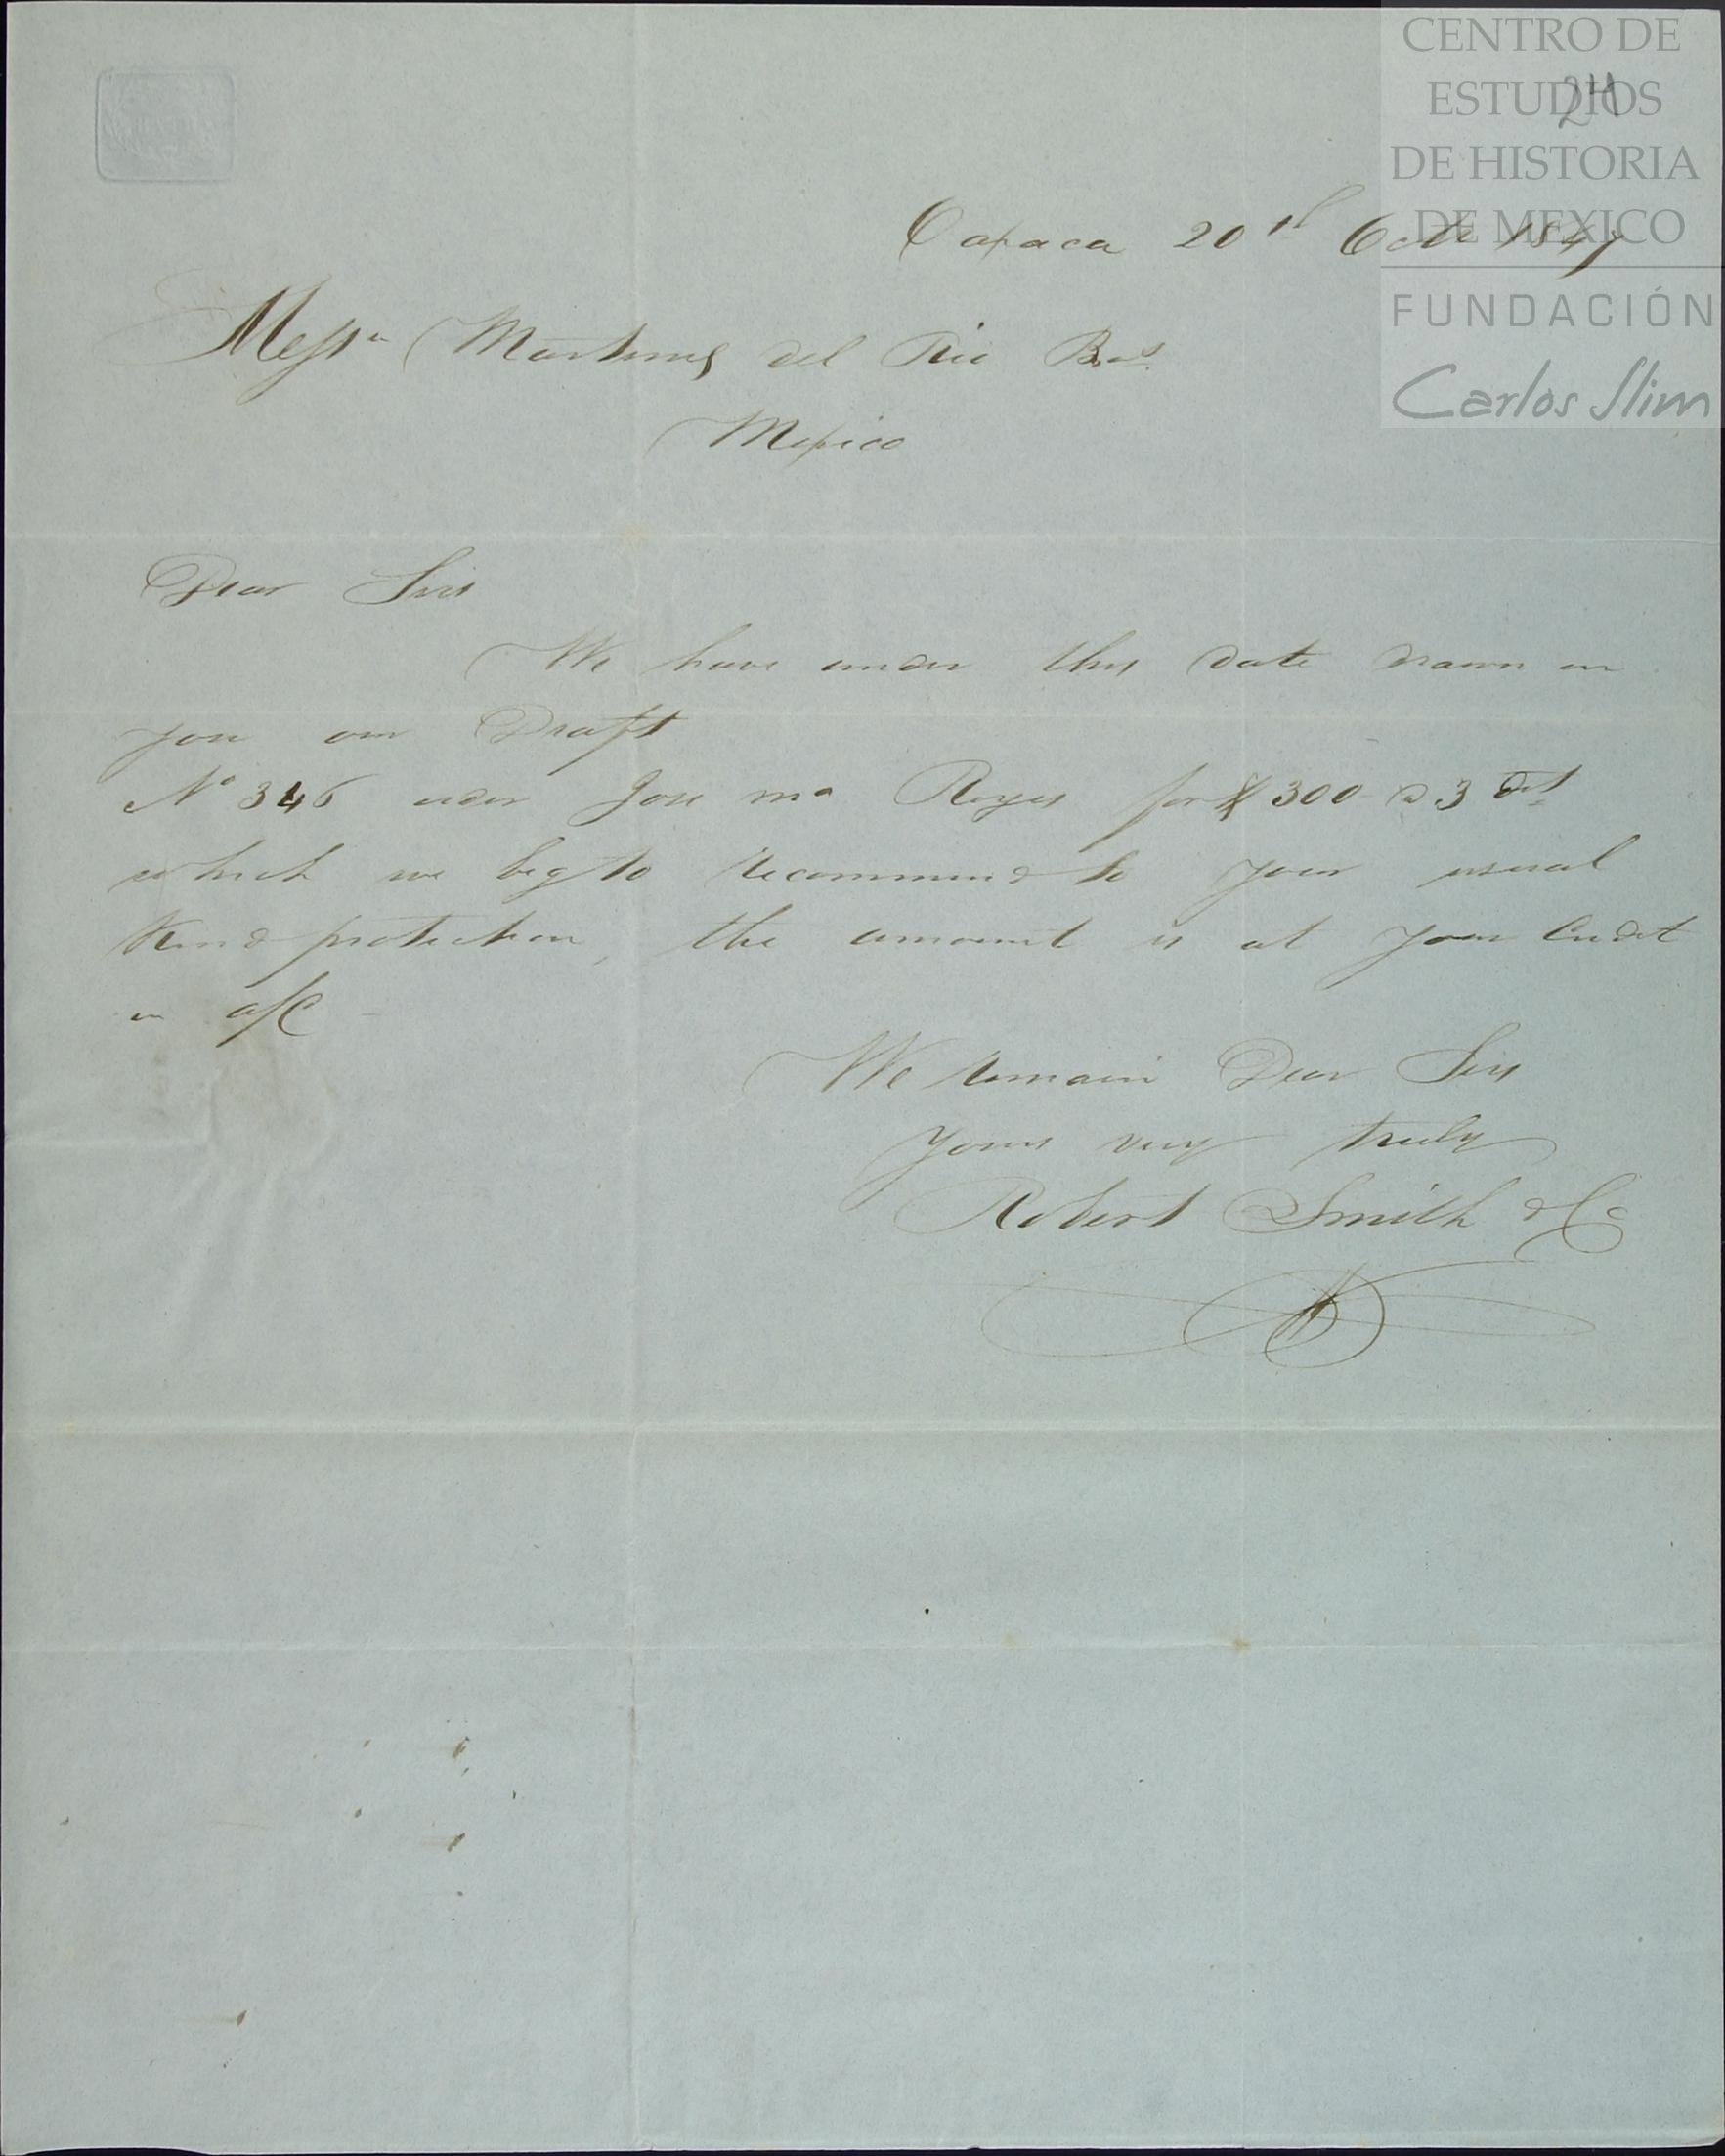 CENTRO DE
ESTUDIOS
DE HISTORIA
DE MEXICO
FUNDACIÓN
Carlos Slim
24
Oaxaca 20th Octr 1847
Messrs Martinez del Rio Bros
Mexico
Dear Sirs
We have under this date drawn on
you our Draft
No 346 order Jose Ma Reyes for $300 @ 3 d/s
which we beg to recommend to your usual
kind protection, the amount is at your Credit
in a/c
We remain Dear Sirs
Yours very truly
Robert Smith & Co